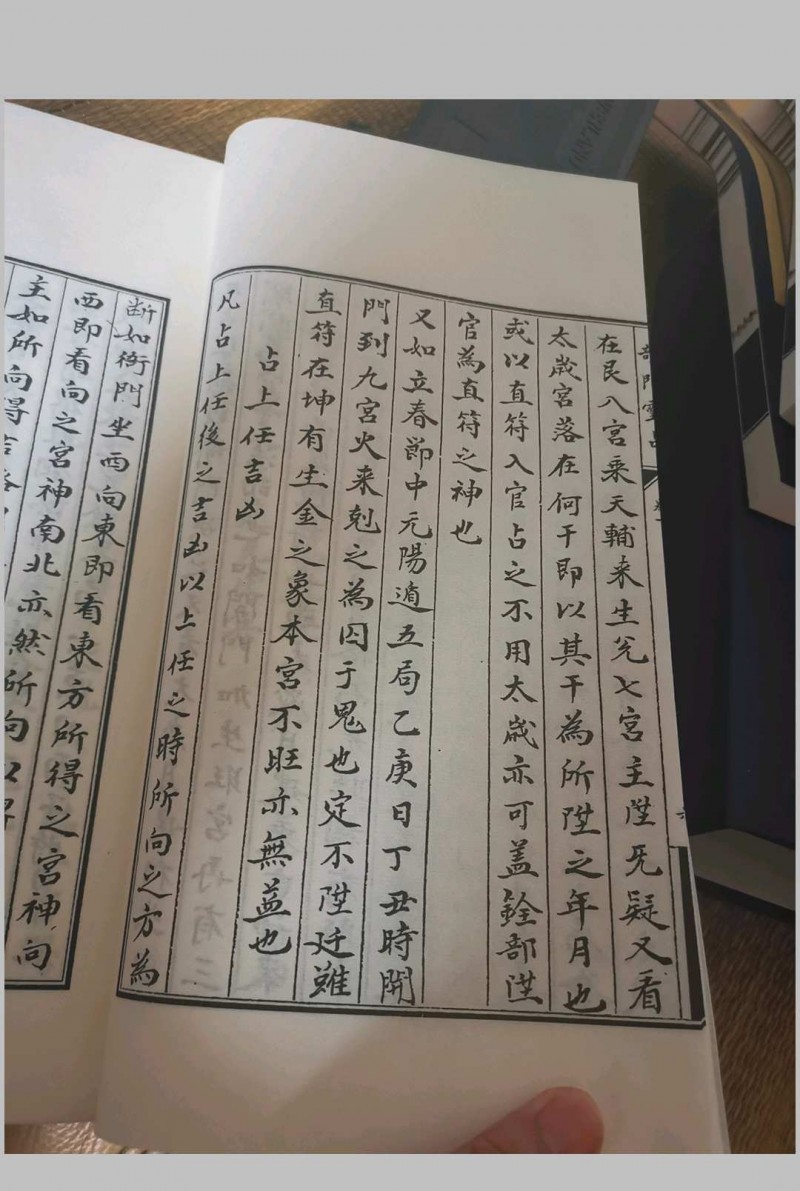 在艮八宮乘天輔来生兊七宮主陞旡疑又看
太歲宮落在何干即以其干為所陞之年月也
或以直符入官占之不用太歲亦可盖銓部陞
官為直符之神也
又如立春節中元陽遁五局乙庚日丁丑時開
門到九宮火来剋之為囚于鬼也定不陞廷雖
直符在坤有生金之象本宮不旺亦無益也
占上任吉凶
凡占上任後之吉凶以上任之時所向之方為
断如衙門坐西向東即看東方所得之宮神向
西即看向之宮神南北亦然所向以
主如所向得吉